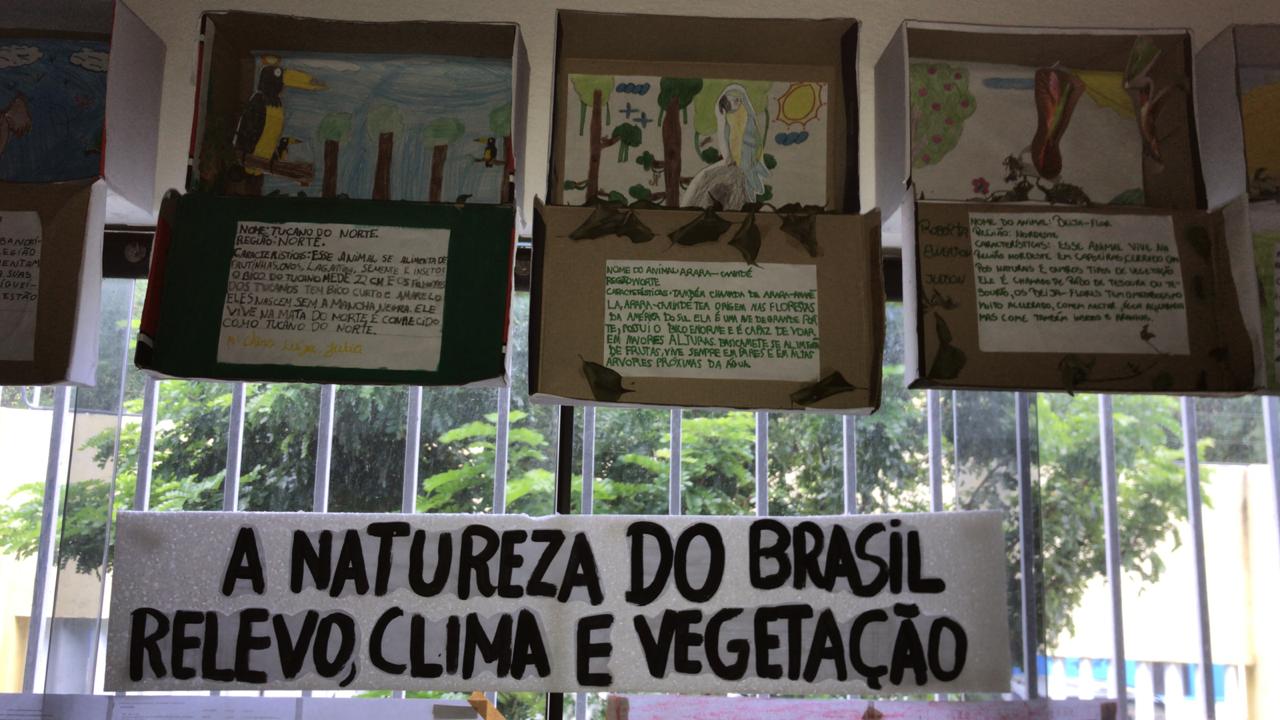 BANDRÍ-
EGIÃO
MENTAM
SUAS
QUEI-
ESTÃO
NOME: TUCANO DO NORTE.
REGIÃO: NORTE.
CARACTERÍSTICAS: ESSE ANIMAL SE ALIMENTA DE
FRUTINHAS, OVOS, LAGARTIXA, SEMENTE E INSETOS
O BICO DO TUCANO MEDE 22 CM E OS FILHOTES
DOS TUCANOS TEM BICO CURTO E AMARELO
ELES NASCEM SEM A MANCHA NEGRA. ELE
VIVE NA MATA DO NORTE E CONHECIDO
COMO TUCANO DO NORTE.
Luiza, Julia
NOME DO ANIMAL: ARARA-CANIDÉ
REGIÃO NORTE
CARACTERÍSTICAS: TAMBÉM CHAMADA DE ARARA-
LA, ARARA-CANIDÉ TEA ORIGEM NAS FLORESTAS
DA AMÉRICA DO SUL. ELA É UMA AVE DE GRANDE POR-
TE, POSTUI O BICO ENORME E É CAPAZ DE VOAR
EM MAIORES ALTURAS. BASICAMETE SE ALIMENTA
DE FRUTAS, VIVE SEMPRE EM PARES E EM ALTAS
ARVORES PRÓXIMAS DA ÁGUA.
ROBERTA
JUDSON
NOME DO ANIMAL: BEIJA-FLOR
REGIÃO: NORDESTE
CARACTERÍSTICAS: ESSE ANIMAL VIVE NA
REGIÃO NORDESTE EM CAPOEIRAS, CERRADO, CAM-
POS NATURAIS E OUTROS TIPOS DE VEGETAÇÃO
ELE É CHAMADO DE RABO DE TESOURA OU TE-
SOURÃO, OS BEIJA-FLORES TEM METABOLISMO
MUITO ACELERADO, COMEM NECTAR, ÁGUA AÇUCARADA
MAS COME TAMBÉM INSETOS E ARANHA.
A NATUREZA DO BRASIL
RELEVO, CLIMA E VEGETAÇÃO